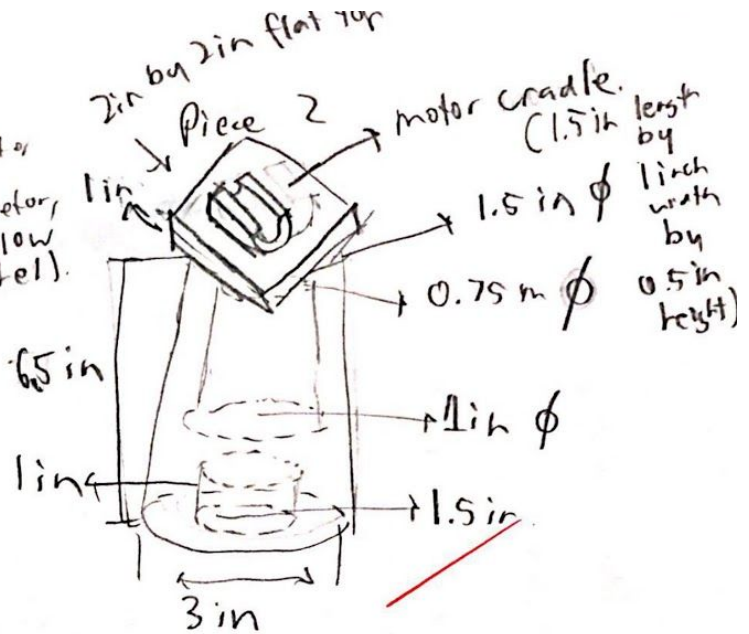 2in by 2in flat top
Piece 2
motor cradle.
(1.5in length
by
1 inch
width
by
0.5 in
height)
1 in
1.5 in ϕ
0.75 in ϕ
6.5 in
1 in ϕ
1 in
1.5 in
3 in